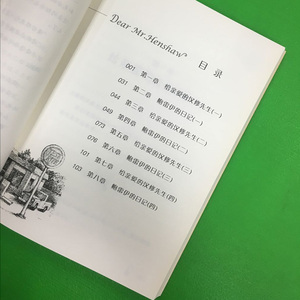 Dear Mr. Henshaw
目 录
001 第一章 给亲爱的汉修先生(一)
031 第二章 鲍雷伊的日记(一)
044 第三章 给亲爱的汉修先生(二)
049 第四章 鲍雷伊的日记(二)
073 第五章 给亲爱的汉修先生(三)
076 第六章 鲍雷伊的日记(三)
101 第七章 给亲爱的汉修先生(四)
103 第八章 鲍雷伊的日记(四)